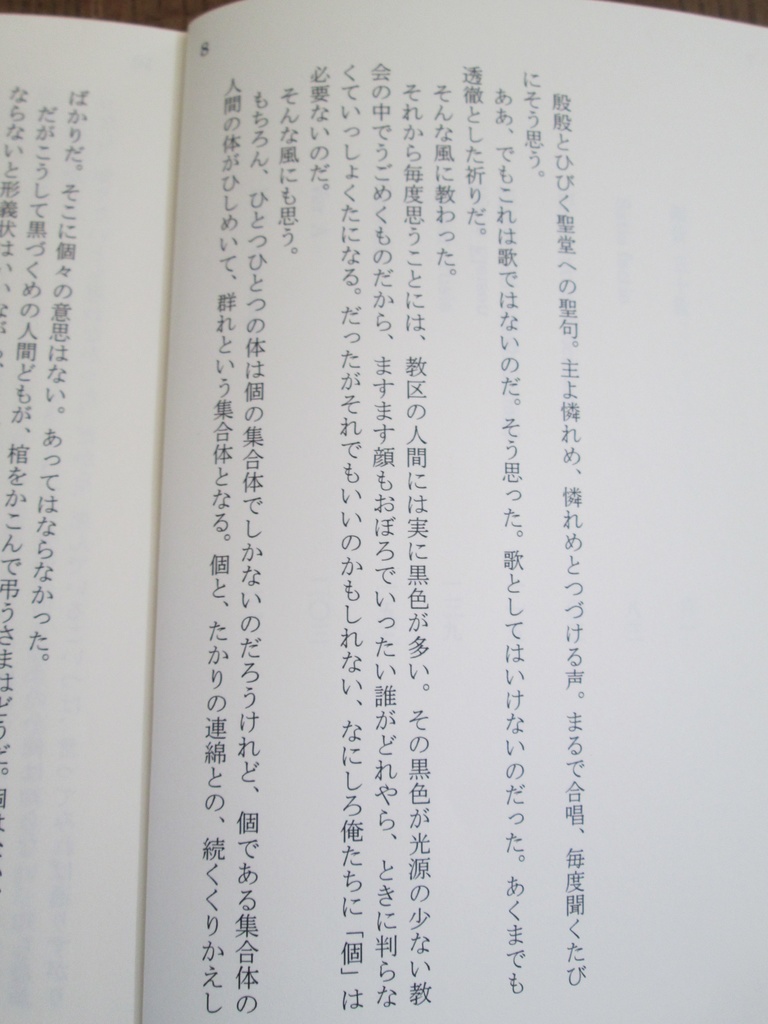 8
殷殷とひびく聖堂への聖句。主よ憐れめ、憐れめとつづける声。まるで合唱、毎度聞くたび
にそう思う。
ああ、でもこれは歌ではないのだ。そう思った。歌としてはいけないのだった。あくまでも
透徹とした祈りだ。
そんな風に教わった。
それから毎度思うことには、教区の人間には実に黒色が多い。その黒色が光源の少ない教
会の中でうごめくものだから、ますます顔もおぼろでいったい誰がどれやら、ときに判らな
くていっしょくたになる。だったがそれでもいいのかもしれない、なにしろ俺たちに「個」は
必要ないのだ。
そんな風にも思う。
もちろん、ひとつひとつの体は個の集合体でしかないのだろうけれど、個である集合体の
人間の体がひしめいて、群れという集合体となる。個と、たかりの連綿との、続くくりかえし
ばかりだ。そこに個々の意思はない。あってはならなかった。
だがこうして黒づくめの人間どもが、棺をかこんで弔うさまはどうだ。個は
ならないと形義状は